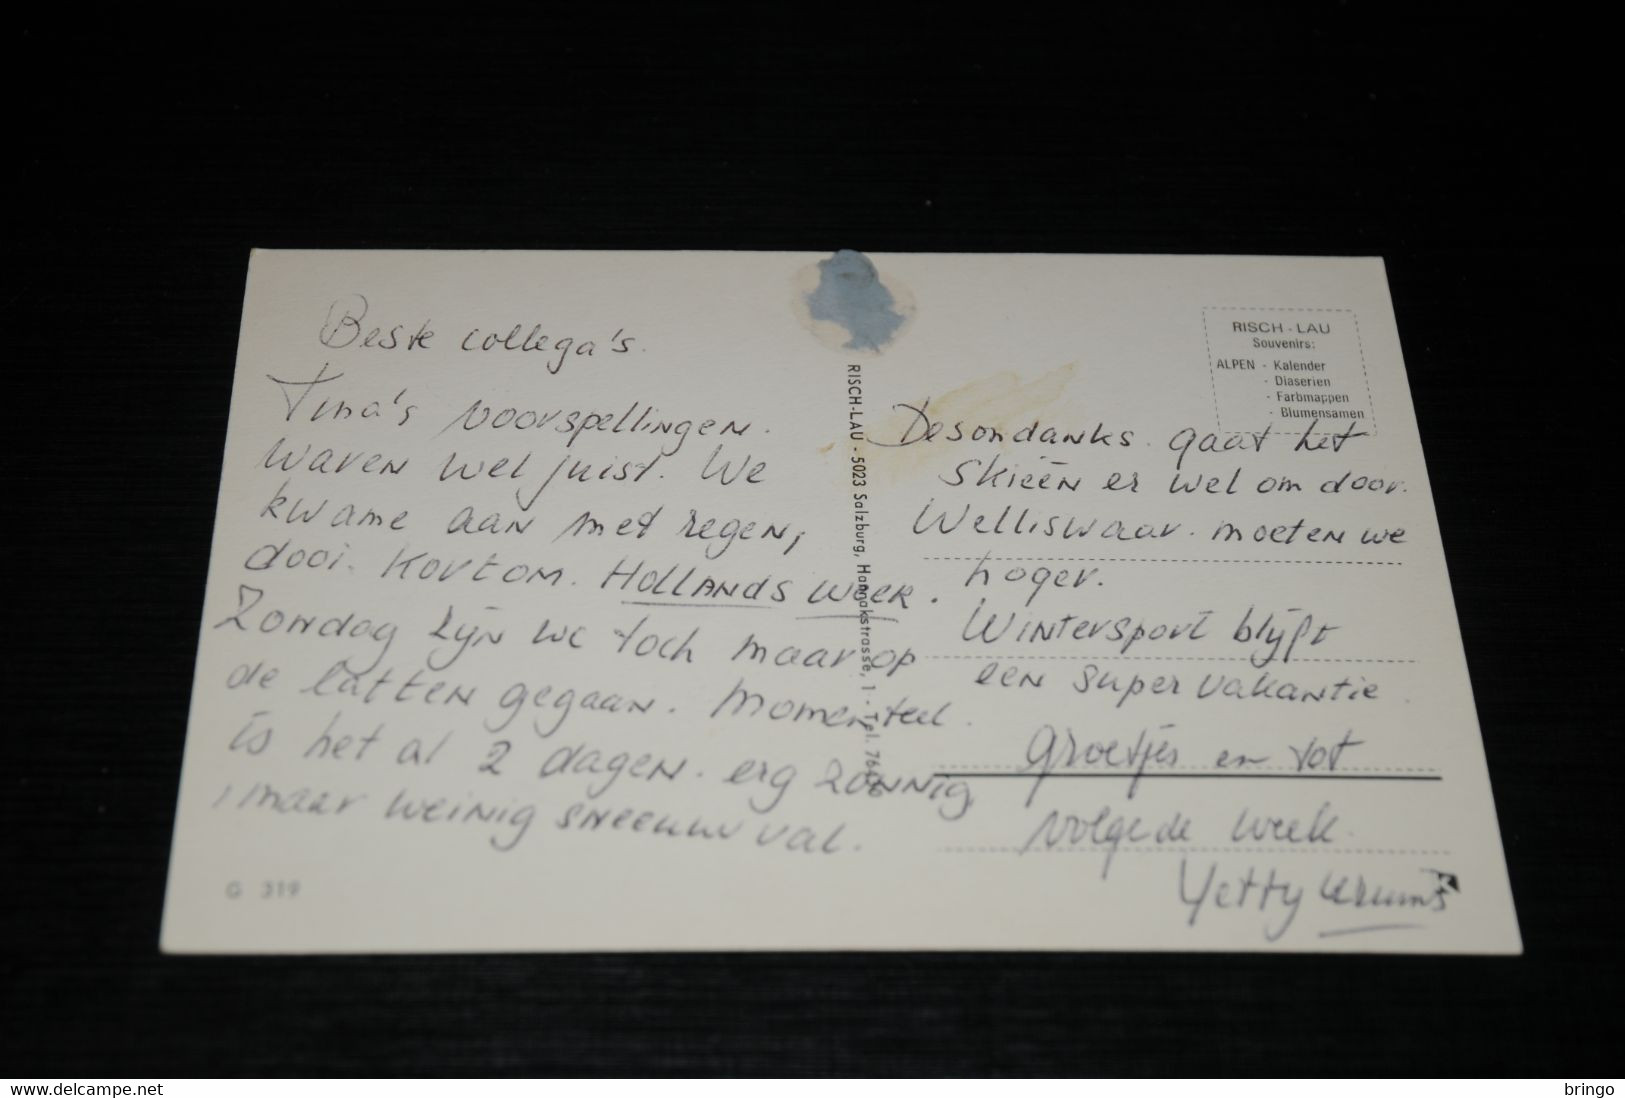 Beste collega's.
Tina's voorspellingen.
waren wel juist. We
kwame aan met regen,
dooi. Kortom. HOLLANDS WEER.
Zondag zijn we toch maar op
de latten gegaan. Momenteel
is het al 2 dagen. erg zonnig,
, maar weinig sneeuw val.
G 319
RISCH-LAU - 5023 Salzburg, Hannakstrasse, 1 - Tel.
RISCH - LAU
Souvenirs:
ALPEN - Kalender
- Diaserien
- Farbmappen
- Blumensamen
Desondanks. gaat het
skieën er wel om door.
Welliswaar. moeten we
hoger.
Wintersport blijft
een super vakantie.
Groetjes en tot
volgede week.
Yetty
www.delcampe.net
bringo